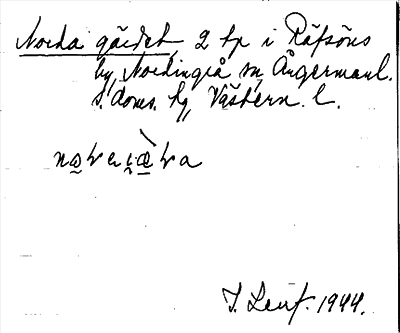 Norda gärdet, 2 tp i Räfsöns
by, Nordingrå sn, Ångermanl.
s. doms. hg, Västern. l.
I. Leuf. 1944.